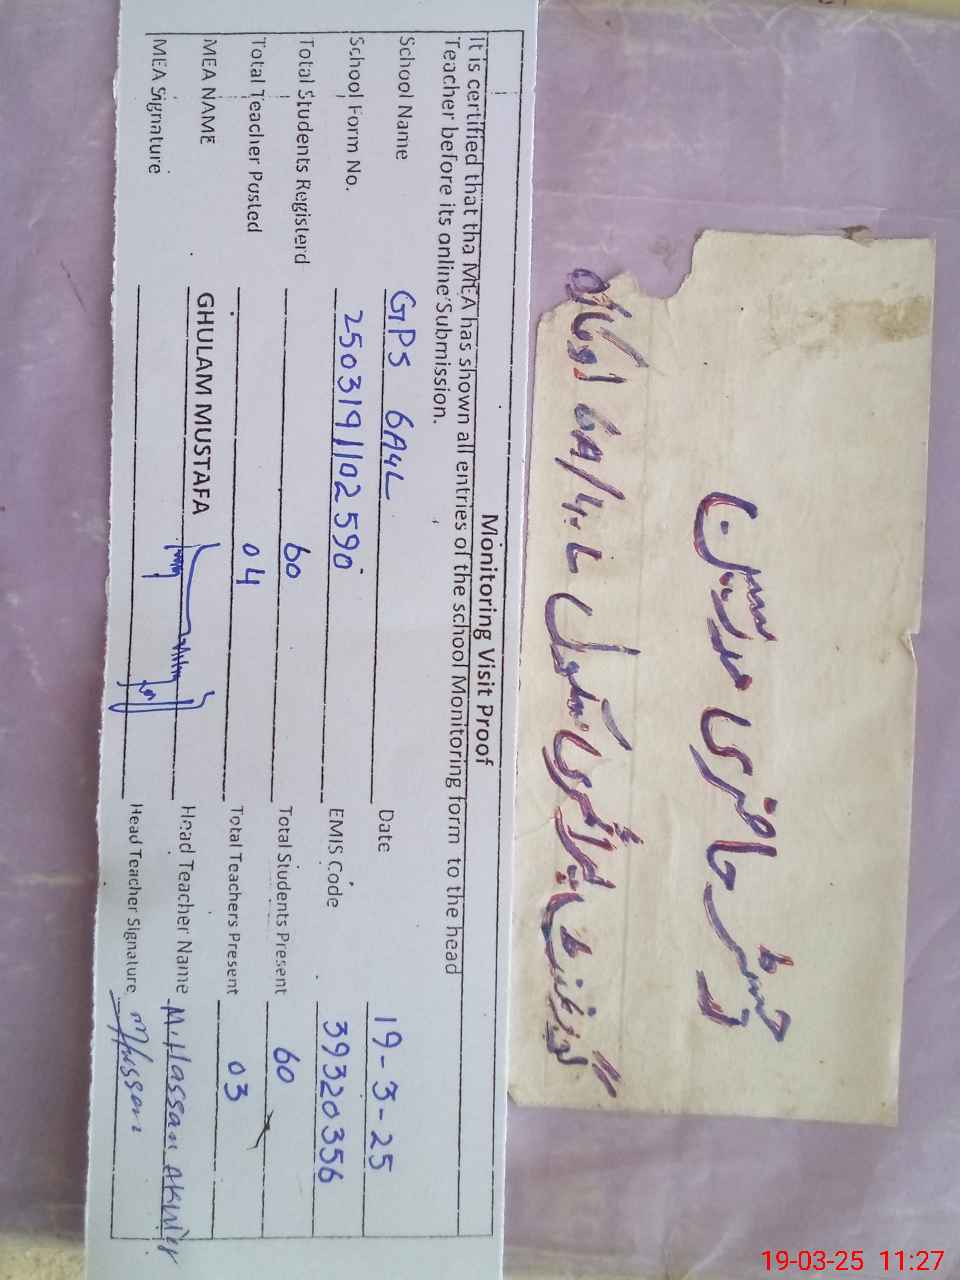 رجسٹر حاضری مدرسین
گورنمنٹ پرائمری سکول 6A/4.L اوکاڑہ
Monitoring Visit Proof
It is certified that tha MEA has shown all entries of the school Monitoring form to the head
Teacher before its online Submission.
School Name GPS 6A4L Date 19-3-25
School Form No. 2503191102590 EMIS Code 39320356
Total Students Registerd 60 Total Students Present 60
Total Teacher Posted 04 Total Teachers Present 03
MEA NAME GHULAM MUSTAFA Head Teacher Name M. Hassan Akhter
MEA Signature Head Teacher Signature MHassan
19-03-25 11:27